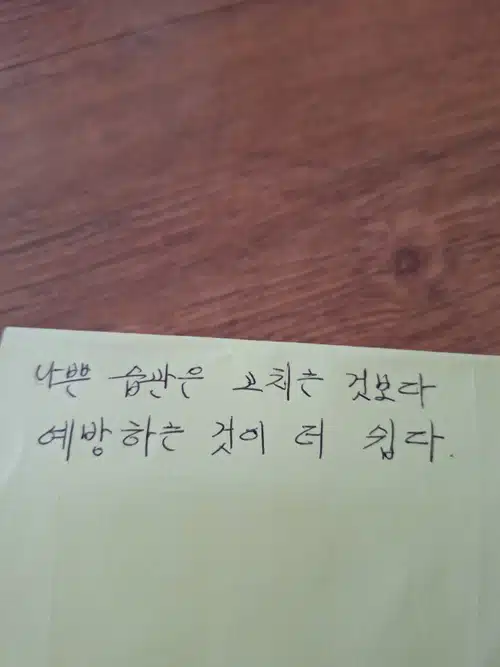 나쁜 습관은 고치는 것보다
예방하는 것이 더 쉽다.